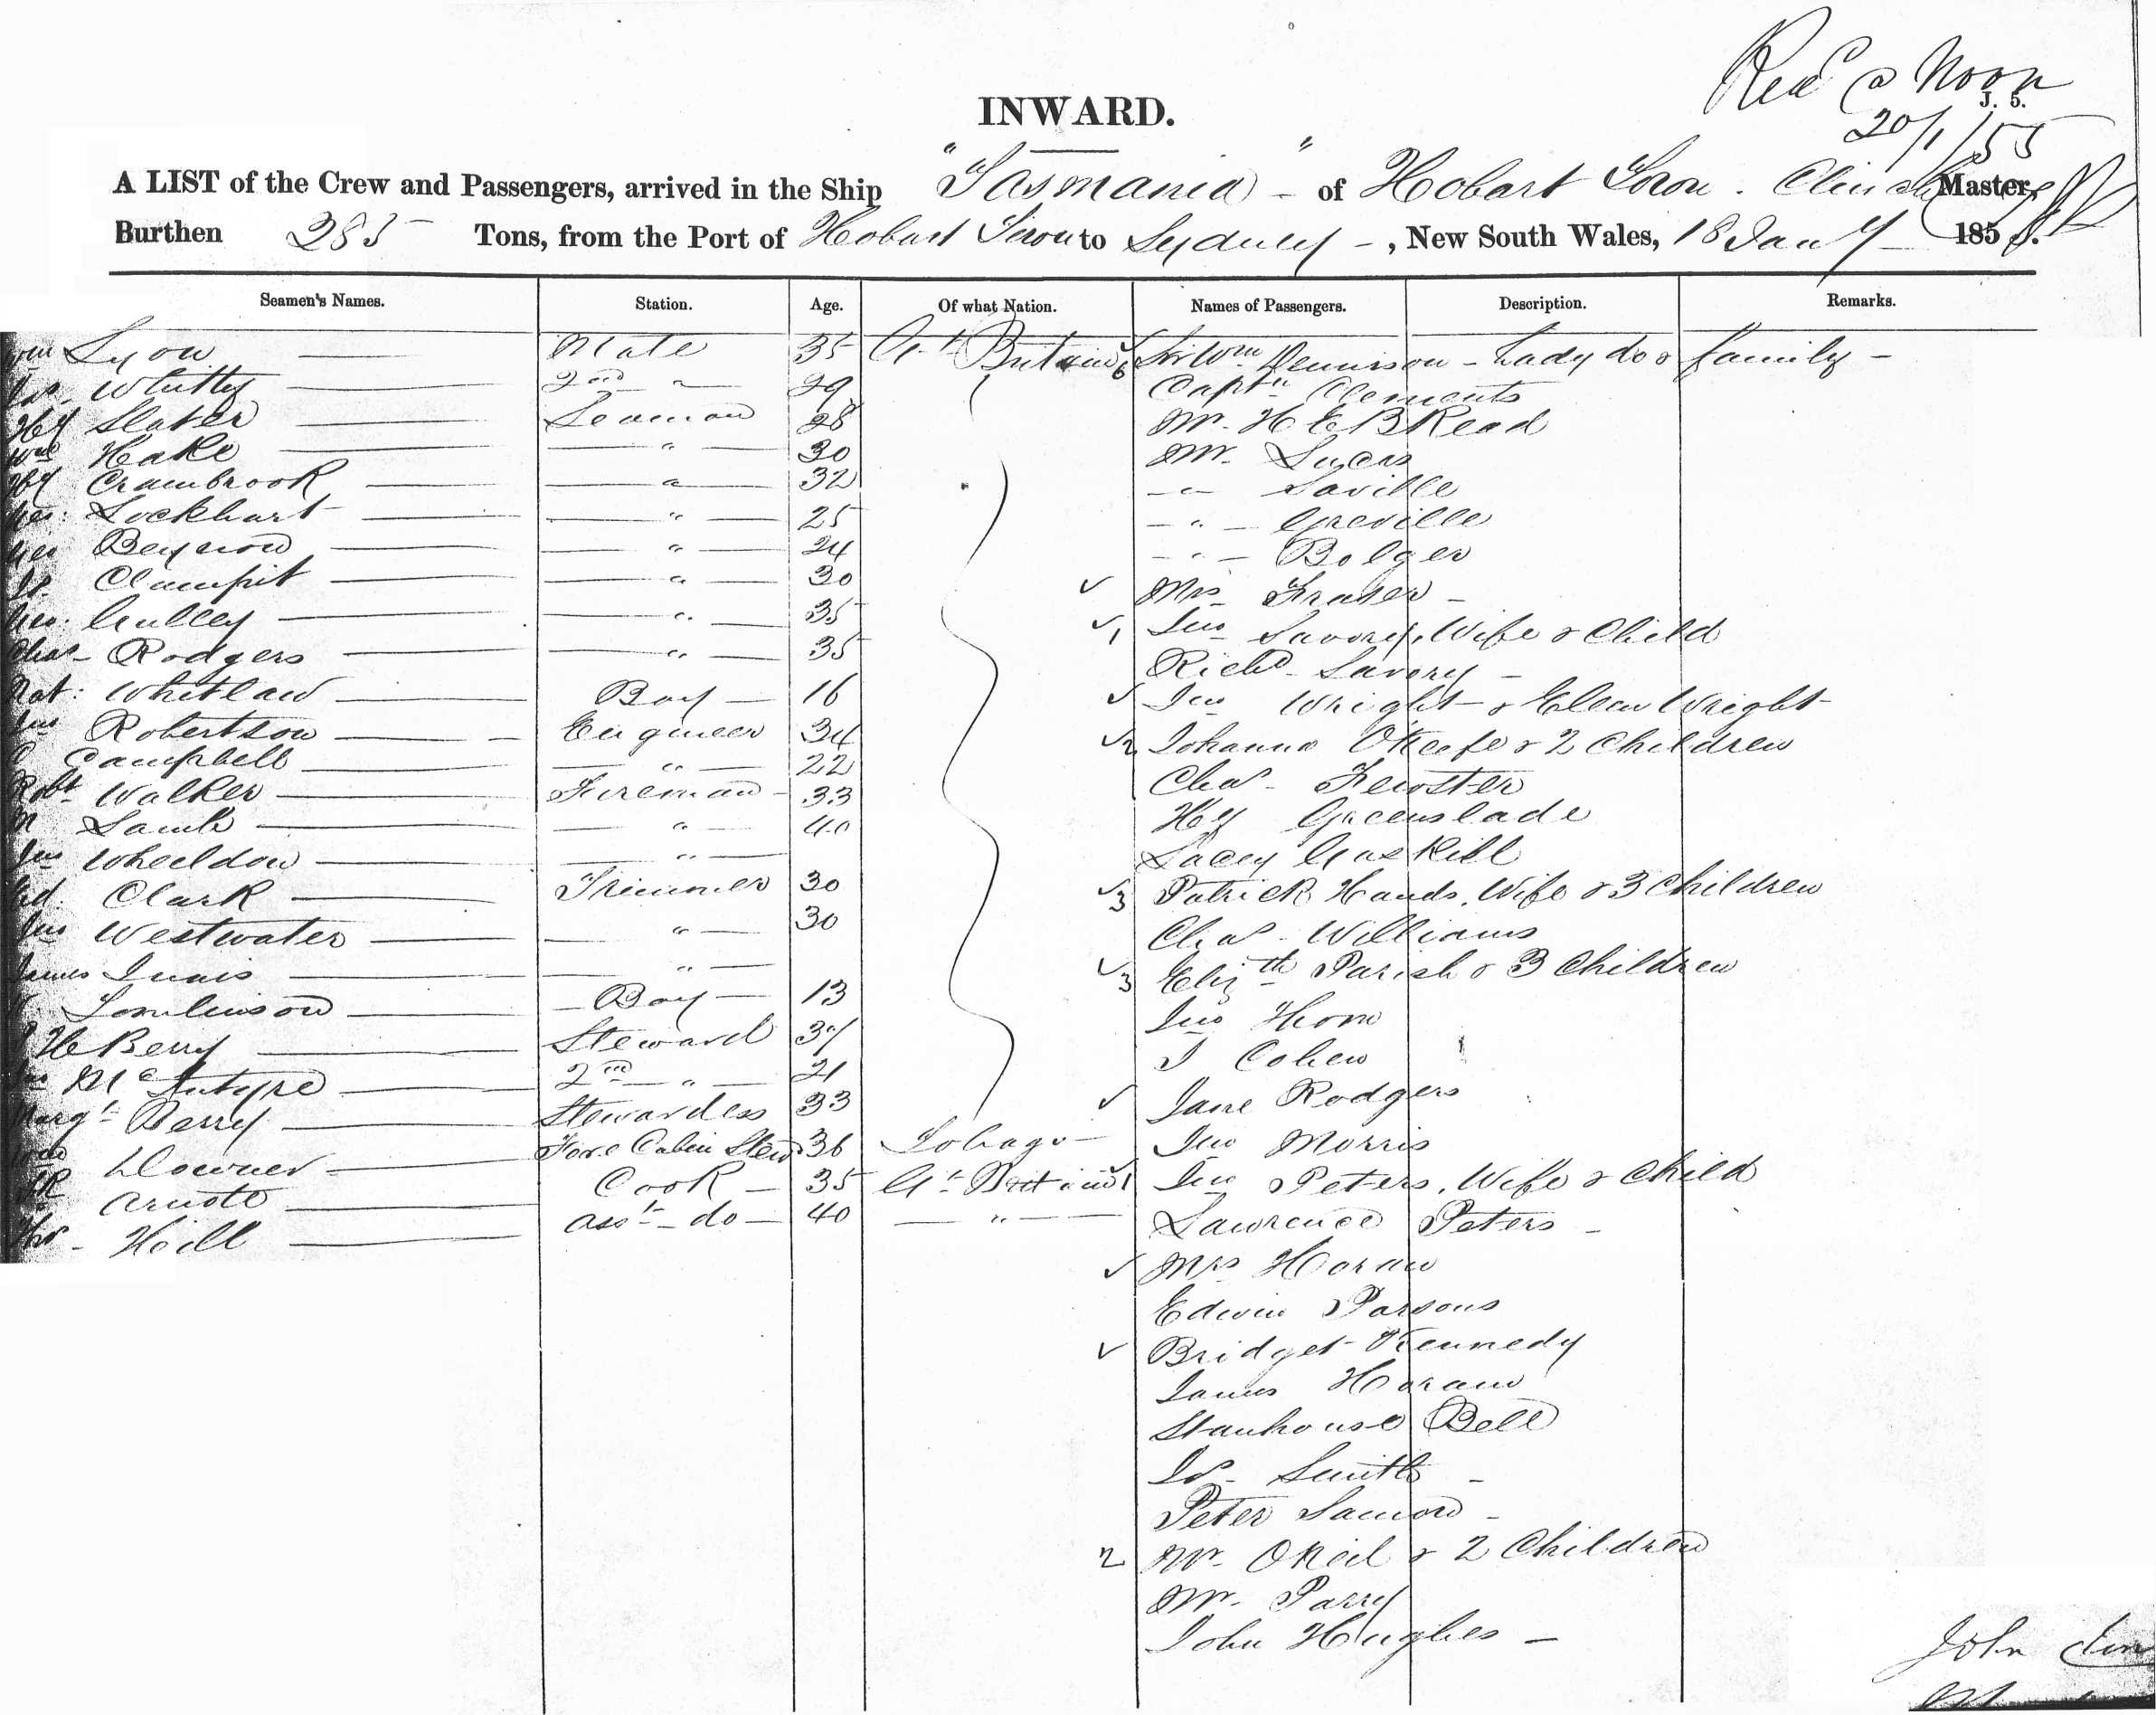 Recd @ Noon
J. 5.
20/1/55
INWARD.
A LIST of the Crew and Passengers, arrived in the Ship "Tasmania" - of Hobart Town. Clinch Master,
Burthen 285 Tons, from the Port of Hobart Town to Sydney -, New South Wales, 18 Jany 1855.
Seamen's Names. Station. Age. Of what Nation. Names of Passengers. Description. Remarks.
Wm Lyon Mate 35 Gt Britain 6 Sir Wm Dennison - Lady do & family -
Whitty 2nd " 29 Captn Clements
Hy Slater Seaman 28 Mr. H E B Read
Wm Hake " 30 Mr.
Hy Crambrook " 32 - " - Saville
Geo: Lockhart " 25 - " - Greville
Geo Beynon " 24 - " - Bolger
Clampit " 30 ✓ Mrs Fraser -
Geo. Gulley " 35 ✓ 1 Jno Savory, Wife & Child
Chas Rodgers " 35 Richd Savory -
Nat: Whitlaw Boy - 16 ✓ Jno Wright - & Ellen Wright -
Jno Robertson Engineer 34 ✓ 2 Johanna OKeefe & 2 Children
Campbell " 22 Chas Fewster
Robt Walker Fireman 33 Hy Greenslade
Lamb " 40 Lacey Gaskill
Jno Wheeldon " ✓ 3 Patrick Hands, Wife & 3 Children
Ed. Clark Trimmer 30 Chas Williams
Jno Westwater " 30 ✓ 3 Elizth Parish & 3 Children
James Innis " Jno Horn
Tomlinson Boy 13 J Cohen
H Berry Steward 37 ✓ Jane Rodgers
McIntyre 2nd " 21 Jno Morris
Margt Berry Stewardess 33 ✓ 1 Jno Peters, Wife & Child
Wm Downer Fore Cabin Stewd 36 Tobago Lawrence Peters -
Arnott Cook - 35 Gt Britain ✓ Mrs Horan
Hill Asst do 40 " Edwin Parsons
✓ Bridget Kennedy
James Horan
Stanhouse Bell
Js Smith -
Peter Samson -
2 Mr. ONeil & 2 Children
Mr. Parry
John Hughes -
John Clin